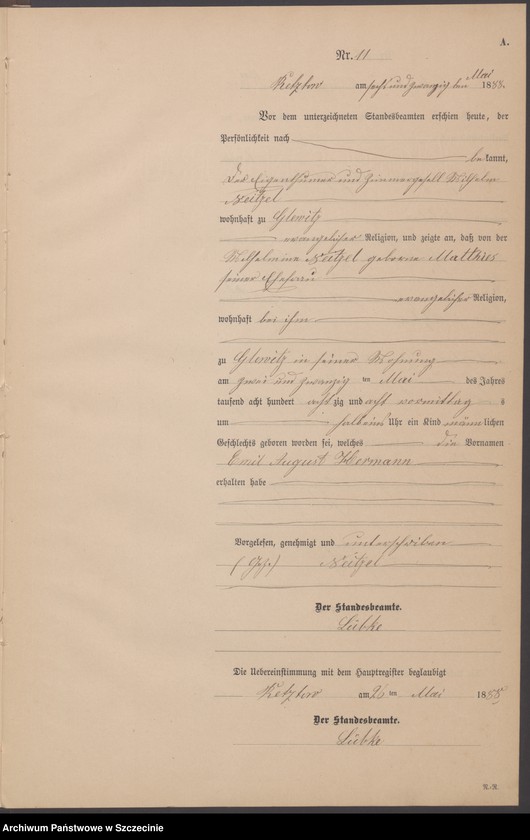 A.
Nr. 11
Retzkow am sechs und zwanzig ten Mai 1888.
Vor dem unterzeichneten Standesbeamten erschien heute, der
Persönlichkeit nach
bekannt,
der Eigenthümer und Zimmergesell Wilhelm
Neitzel
wohnhaft zu Glewitz
evangelischer Religion, und zeigte an, daß von der
Wilhelmine Neitzel geborne Matthies
seiner Ehefrau
evangelischer Religion,
wohnhaft bei ihm
zu Glewitz in seiner Wohnung
am zwei und zwanzig ten Mai des Jahres
tausend acht hundert achtzig und acht vormittag s
um halb eins Uhr ein Kind männlichen
Geschlechts geboren worden sei, welches die Vornamen
Emil August Hermann
erhalten habe
Vorgelesen, genehmigt und unterschrieben
(Gez.) Neitzel
Der Standesbeamte.
Lübke
Die Uebereinstimmung mit dem Hauptregister beglaubigt
Retzkow am 26 ten Mai 1888
Der Standesbeamte.
Lübke
R.-R.
Archiwum Państwowe w Szczecinie